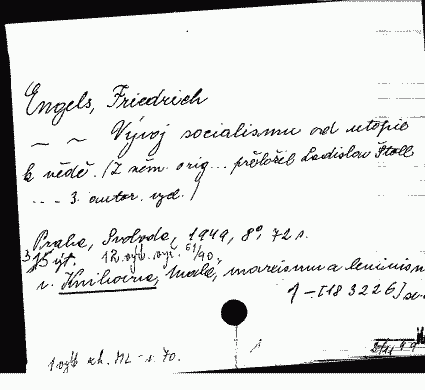 Engels, Friedrich
~ ~ Vývoj socialismu od utopie
k vědě. /Z něm. orig... přeložil Ladislav Štoll
... 3. autor. vyd. /
Praha, Svoboda, 1949, 8°, 72 s.
3 výt.
v. Knihovna, malá, marxismu a leninism
1 - [183226]